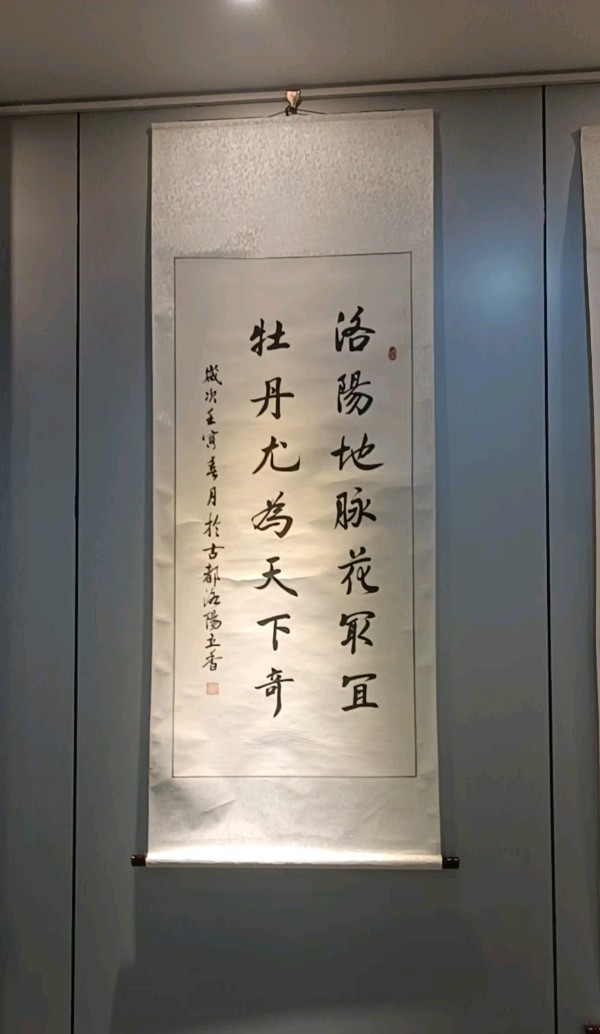 洛陽地脉花冣冝
牡丹尤為天下奇
歲次壬寅春月於古都洛陽立香